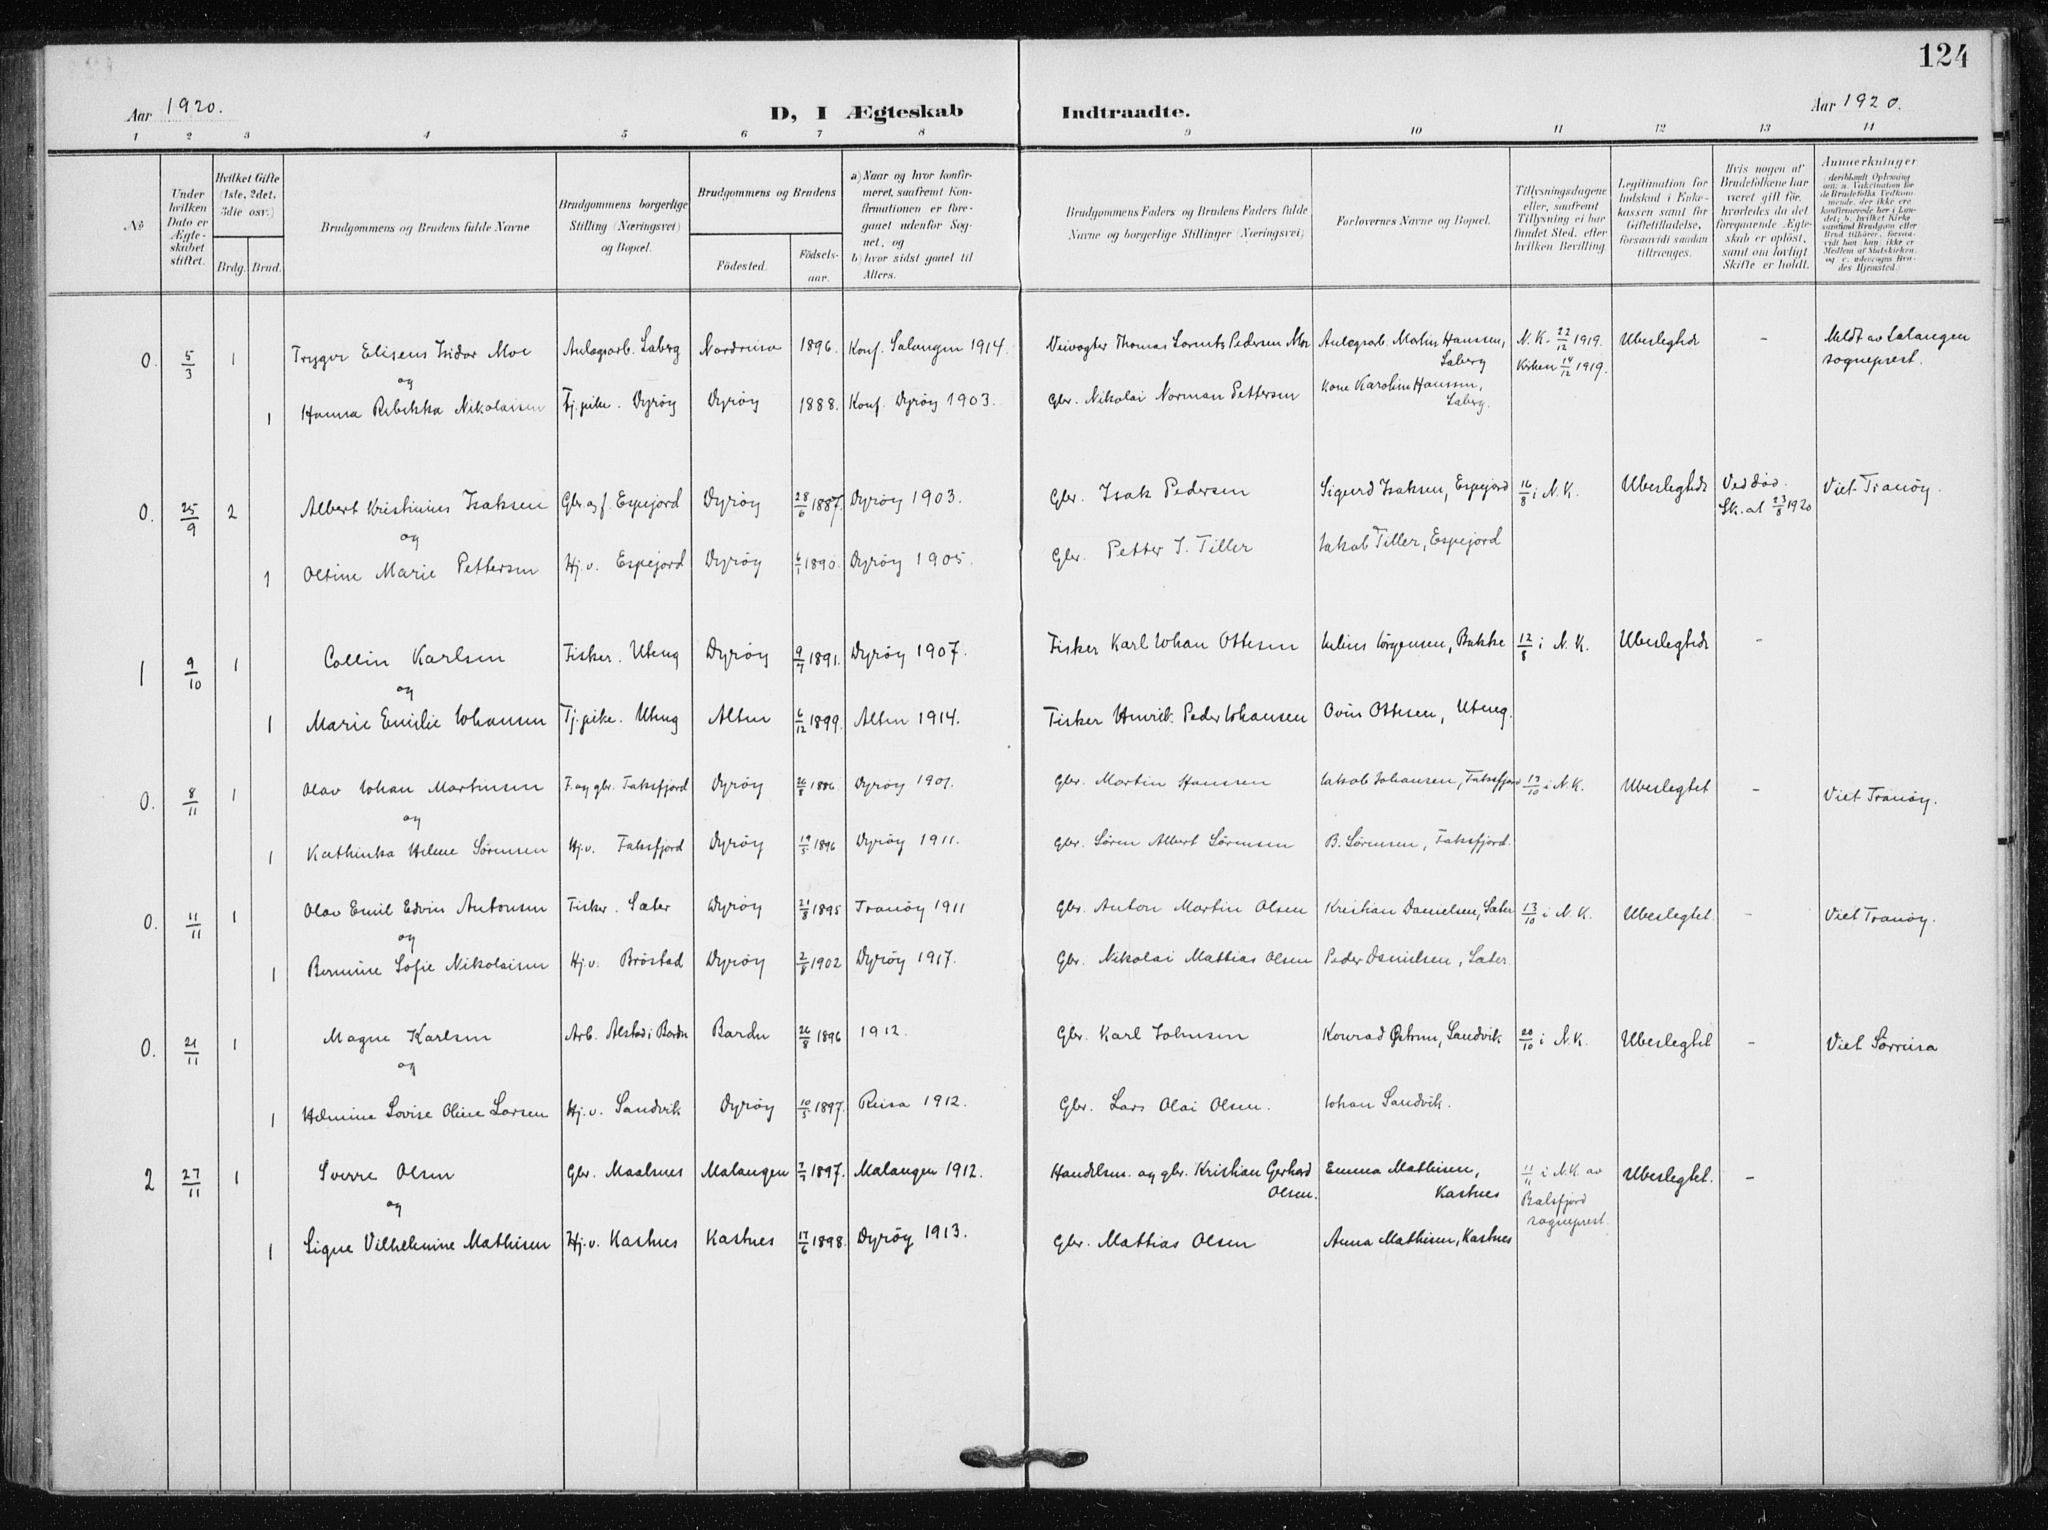 124
Aar 1920.
D, I Ægteskab Indtraadte.
Aar 1920.
1 2 3 4 5 6 7 8 9 10 11 12 13 14
No
Under hvilken Dato er Ægteskabet stiftet.
Hvilket Gifte (1ste, 2det, 3die osv.)
Brdg. Brud.
Brudgommens og Brudens fulde Navne
Brudgommens borgerlige Stilling (Næringsvei) og Bopæl.
Brudgommens og Brudens
Fødested. Fødselsaar.
a) Naar og hvor konfirmeret, saafremt Konfirmationen er foregaaet udenfor Sognet, og
b) hvor sidst gaaet til Alters.
Brudgommens Faders og Brudens Faders fulde Navne og borgerlige Stillinger (Næringsvei)
Forlovernes Navne og Bopæl.
Tillysningsdagene eller, saafremt Tillysning ei har fundet Sted, efter hvilken Bevilling.
Legitimation for Indskud i Enkekassen samt for Giftetilladelse, forsaavidt saadan tiltrænges.
Hvis nogen af Brudefolkene har været gift før, hvorledes da det foregaaende Ægteskab er opløst, samt om lovligt Skifte er holdt.
Anmerkninger (deriblandt Oplysning om: a. Vakcination for de Brudefolks Vedkommende, der ikke ere konfirmerede her i Landet; b. hvilket Kirkesamfund Brudgom eller Brud tilhører, forsaavidt han, hun, ikke er Medlem af Statskirken, og c. udensogns Brudes Hjemsted.)
0. 5/3 1 Trygve Elisens Isidor Moe Anlægsarb. Laberg Nordreisa 1896. Konf. Salangen 1914. Veivogter Thomas Lorents Pedersen Moe Anlægsarb. Martin Hanssen, Laberg N.K. 22/12 1919. Kirken 14/12 1919. Ubeslegtede - Meldt av Salangen sogneprest.
og
1 Hanna Rebekka Nikolaisen Tj.pike. Dyrøy Dyrøy 1888. Konf. Dyrøy 1903. Gbr. Nikolai Norman Pettersen Kone Karoline Hanssen, Laberg.
0. 25/9 2 Albert Kristinius Isaksen Gbr. og f. Espejord Dyrøy 28/6 1887. Dyrøy 1903. Gbr. Isak Pedersen Sigurd Isaksen, Espejord 16/8 i N.K. Ubeslegtede Ved død. Sk.at 23/8 1920 Viet Tranøy.
og
1 Oltine Marie Pettersen Hj.v. Espejord Dyrøy 6/1 1890. Dyrøy 1905. Gbr. Petter J. Tiller Jakob Tiller, Espejord
1 9/10 1 Collin Karlsen Fisker. Uteng Dyrøy 9/7 1891. Dyrøy 1907. Fisker Karl Johan Ottesen Julius Jørgensen, Bakke 12/8 i N.K. Ubeslegtede -
og
1 Marie Emilie Johansen Tj.pike. Uteng Alten 6/12 1899. Alten 1914. Fisker Henrik Peder Johansen Ovin Ottesen, Uteng.
0. 8/11 1 Olav Johan Martinsen F. og gbr. Faksfjord Dyrøy 26/8 1886 Dyrøy 1901. Gbr. Martin Hanssen Jakob Johansen, Faksfjord 13/10 i N.K. Ubeslegtet - Viet Tranøy.
og
1 Kathinka Helene Sørensen Hj.v. Faksfjord Dyrøy 19/5 1896 Dyrøy 1911. Gbr. Søren Albert Sørensen B. Sørensen, Faksfjord.
0. 11/11 1 Olav Emil Edvin Antonsen Fisker. Sæter Dyrøy 21/8 1895 Tranøy 1911 Gbr. Anton Martin Olsen Kristian Danielsen, Sæter 13/10 i N.K. Ubeslegtet. - Viet Tranøy.
og
1 Bernine Sofie Nikolaisen Hj.v. Brøstad Dyrøy 2/8 1902 Dyrøy 1917. Gbr. Nikolai Mathias Olsen Peder Danielsen, Sæter
0. 21/11 1 Magne Karlsen Arb. Alstad i Bardu Bardu 26/8 1896 1912. Gbr. Karl Johnsen Konrad Østrem, Sandvik 20/10 i N.K. Ubeslegtet - Viet Sørreisa
og
1 Helmine Lovise Oline Larsen Hj.v. Sandvik Dyrøy 10/5 1897. Reisa 1912. Gbr. Lars Olai Olsen. Johan Sandvik.
2 27/11 1 Sverre Olsen Gbr. Maalsnes Malangen 7/7 1897. Malangen 1912. Handelsm. og gbr. Kristian Gerhard Olsen. Emma Mathisen, Kastnes 11/11 i N.K. av Balsfjord sogneprest. Ubeslegtet. -
og
1 Signe Vilhelmine Mathisen Hj.v. Kastnes Kastnes 17/6 1898. Dyrøy 1913. Gbr. Mattias Olsen Anna Mathisen, Kastnes